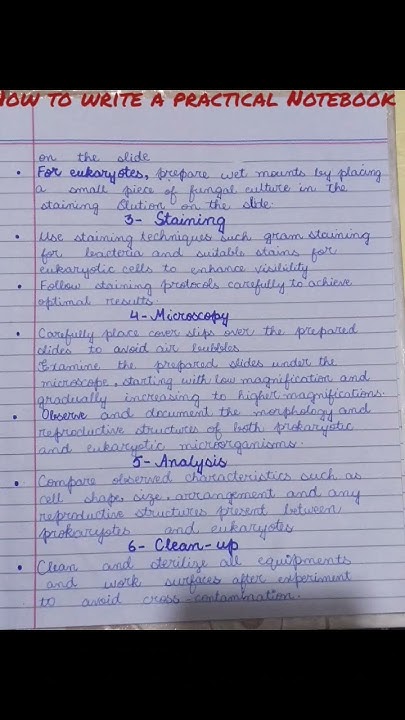 HOW TO WRITE A PRACTICAL NOTEBOOK
on the slide
• For eukaryotes, prepare wet mounts by placing
a small piece of fungal culture in the
staining Olution on the slide.
3- Staining
• Use staining techniques such gram staining
for bacteria and suitable stains for
eukaryotic cells to enhance visibility
• Follow staining protocols carefully to achieve
optimal results.
4-Microscopy
• Carefully place cover slips over the prepared
slides to avoid air bubbles
Examine the prepared slides under the
microscope, starting with low magnification and
gradually increasing to higher magnifications.
• Observe and document the morphology and
reproductive structures of both prokaryotic
and eukaryotic microorganisms.
5- Analysis
• Compare observed characteristics such as
cell shape, size, arrangement and any
reproductive structures present between
prokaryotes and eukaryotes
6- Clean-up
• Clean and sterilize all equipments
and work surfaces after experiment
to avoid cross-contamination.